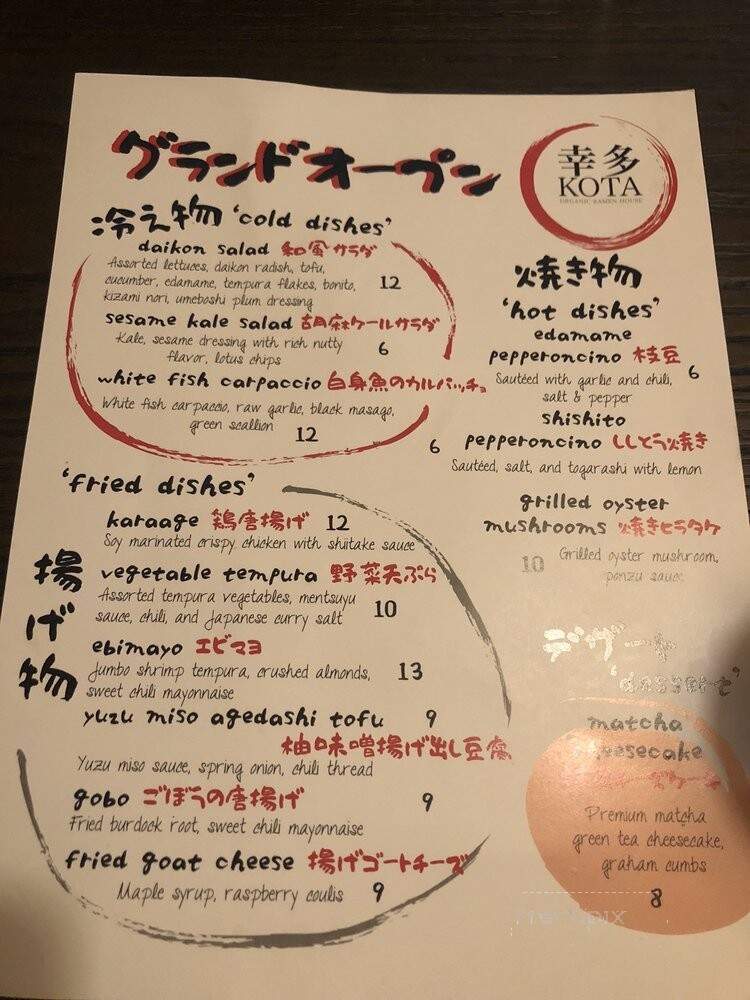 グランドオープン
幸多
KOTA
ORGANIC RAMEN HOUSE
冷え物 'cold dishes'
daikon salad 和風サラダ
Assorted lettuces, daikon radish, tofu,
cucumber, edamame, tempura flakes, bonito,
kizami nori, umeboshi plum dressing
12
sesame kale salad 胡麻ケールサラダ
Kale, sesame dressing with rich nutty
flavor, lotus chips
6
white fish carpaccio 白身魚のカルパッチョ
White fish carpaccio, raw garlic, black masago,
green scallion
12
'fried dishes'
揚げ物
karaage 鶏唐揚げ 12
Soy marinated crispy chicken with shiitake sauce
vegetable tempura 野菜天ぷら
Assorted tempura vegetables, mentsuyu
sauce, chili, and Japanese curry salt
10
ebimayo エビマヨ
Jumbo shrimp tempura, crushed almonds,
sweet chili mayonnaise
13
yuzu miso agedashi tofu 9
柚味噌揚げ出し豆腐
Yuzu miso sauce, spring onion, chili thread
gobo ごぼうの唐揚げ 9
Fried burdock root, sweet chili mayonnaise
fried goat cheese 揚げゴートチーズ
Maple syrup, raspberry coulis 9
焼き物
'hot dishes'
edamame
pepperoncino 枝豆
Sautéed with garlic and chili,
salt & pepper
6
shishito
pepperoncino ししとう焼き
6
Sautéed, salt, and togarashi with lemon
grilled oyster
mushrooms 焼きヒラタケ
10
Grilled oyster mushroom,
ponzu sauce
デザート
'dessert'
matcha
cheesecake
Premium matcha
green tea cheesecake,
graham cumbs
8